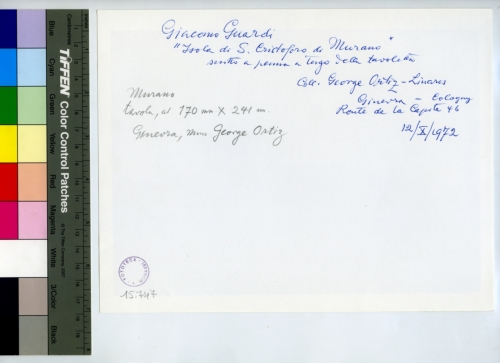 Giacomo Guardi
"Isola di S. Cristoforo di Murano"
scritto a penna a tergo della tavoletta
Coll. George Ortiz-Linares
Ginevra - Cologny
Route de la Capite 46
12/X/1972
Murano
tavola, al 170 mm X 241 m.
Ginevra, George Ortiz
FOTOTECA
15.747
TIFFEN Color Control Patches
Blue
Cyan
Green
Yellow
Red
Magenta
White
3/Color
Black